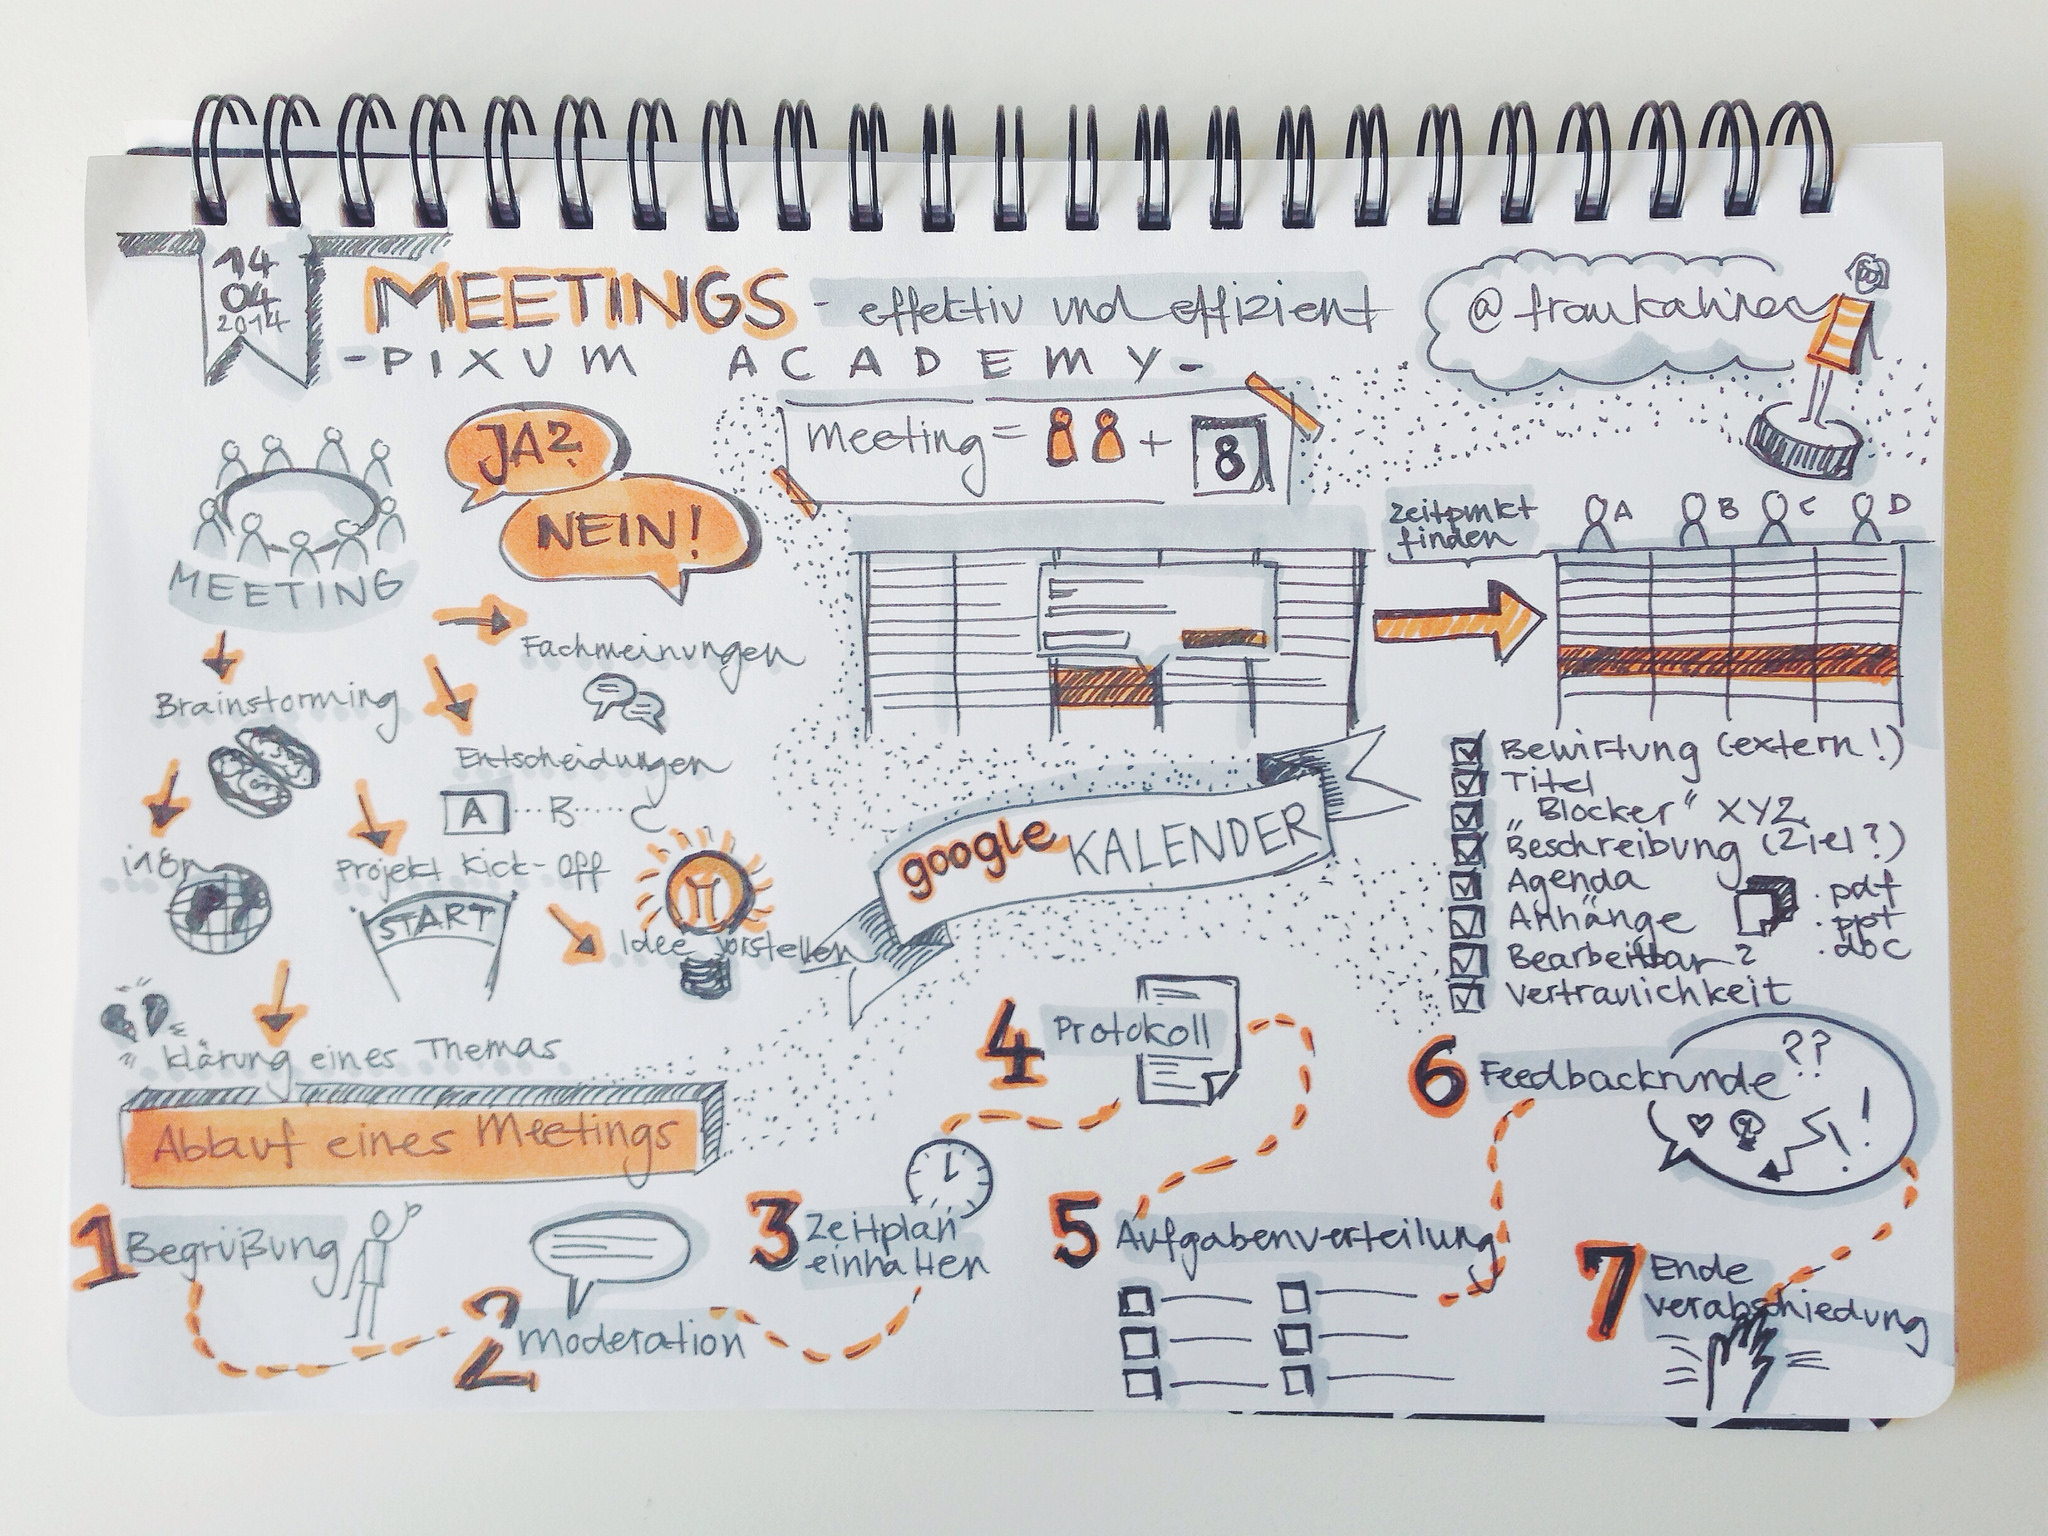 14
04
2014
MEETINGS - effektiv und effizient
-PIXUM ACADEMY-
JA?
NEIN!
MEETING
Fachmeinungen
Brainstorming
Entscheidungen
A B C
i18n
Projekt Kick-Off
START
Idee vorstellen
Klärung eines Themas
meeting = +
8
Zeitpunkt
finden
A B C D
google KALENDER
Bewirtung (extern!)
Titel
"Blocker" XYZ
Beschreibung (Ziel?)
Agenda
Anhänge
.pdf
.ppt
.doc
Bearbeitbar?
Vertraulichkeit
Ablauf eines Meetings
1 Begrüßung
2 Moderation
3 Zeitplan
einhalten
4 Protokoll
5 Aufgabenverteilung
6 Feedbackrunde
??
!
7 Ende
Verabschiedung